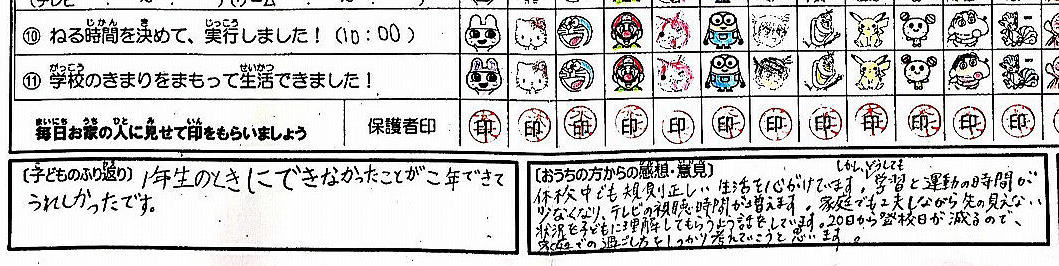 ⑩ ねる時間を決めて、実行しました！（10：00）
⑪ 学校のきまりをまもって生活できました！
毎日お家の人に見せて印をもらいましょう 保護者印 印 印 印 印 印 印 印 印 印 印 印 印
〔子どものふり返り〕 1年生のときにできなかったことが二年できて
うれしかったです。
〔おうちの方からの感想・意見〕 しかし、どうしても
休校中でも規則正しい生活を心がけています。学習と運動の時間が
少なくなり、テレビの視聴時間が増えます。家庭でも工夫しながら先の見えない
状況を子どもに理解してもらうよう話をしています。20日から登校日が減るので、
家庭での過ごし方をしっかり考えていこうと思います。